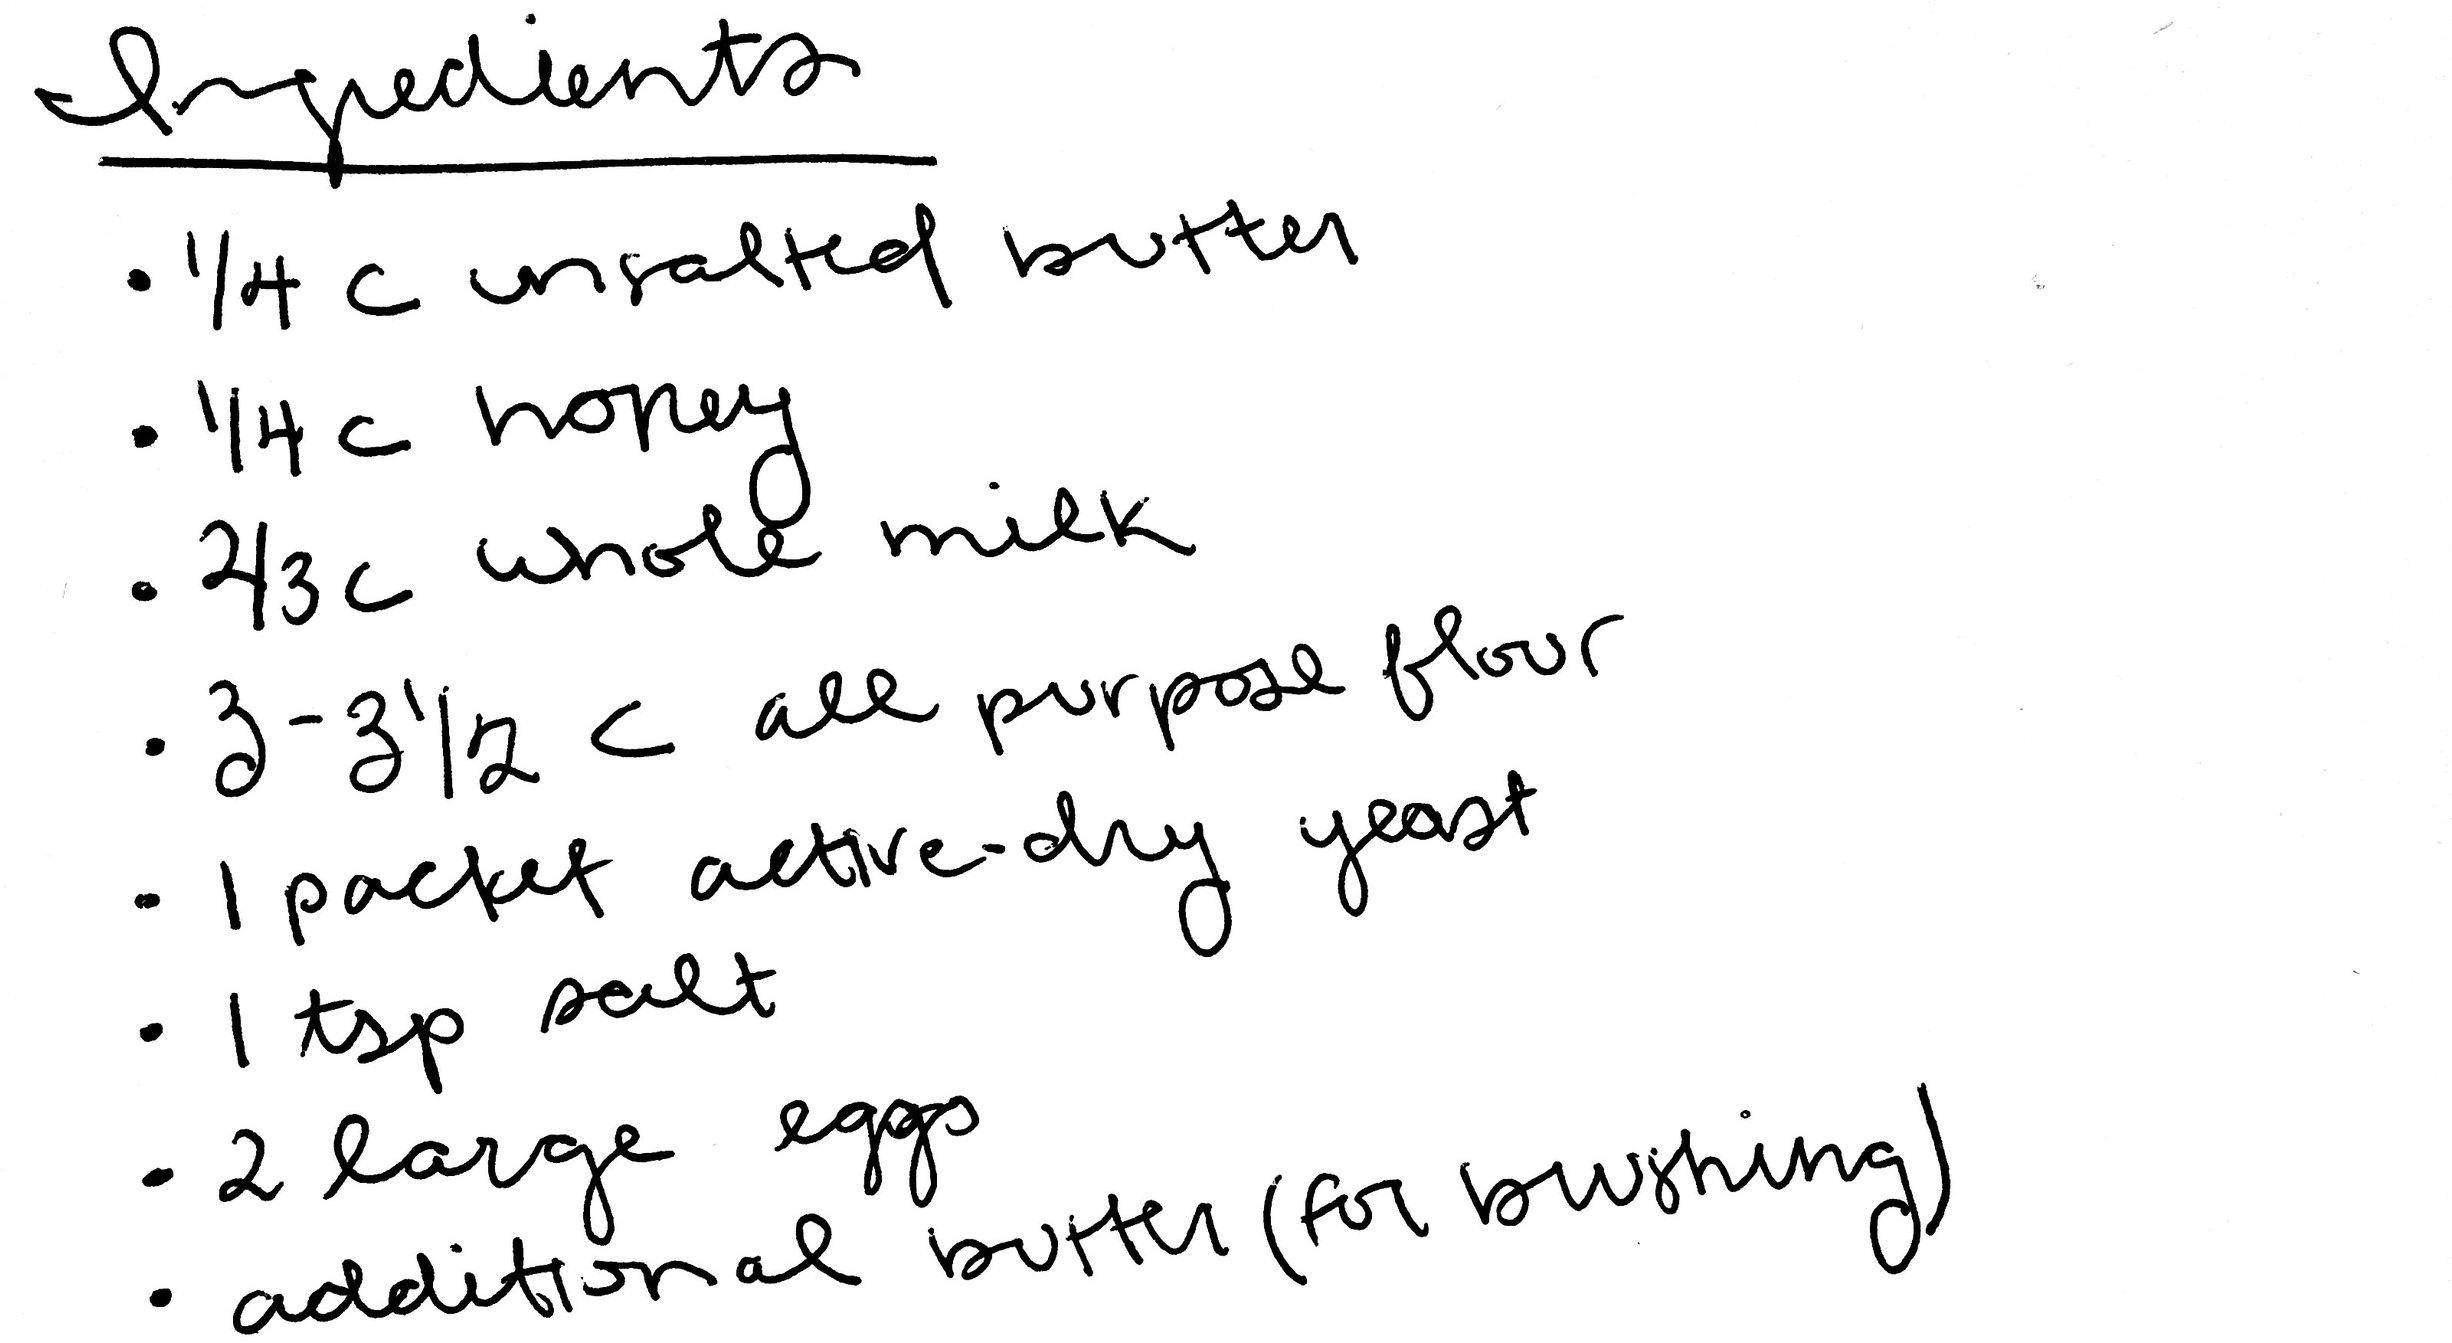 Ingredients
• 1/4 c unsalted butter
• 1/4 c honey
• 2/3 c whole milk
• 3-3 1/2 c all purpose flour
• 1 packet active-dry yeast
• 1 tsp salt
• 2 large eggs
• additional butter (for brushing)